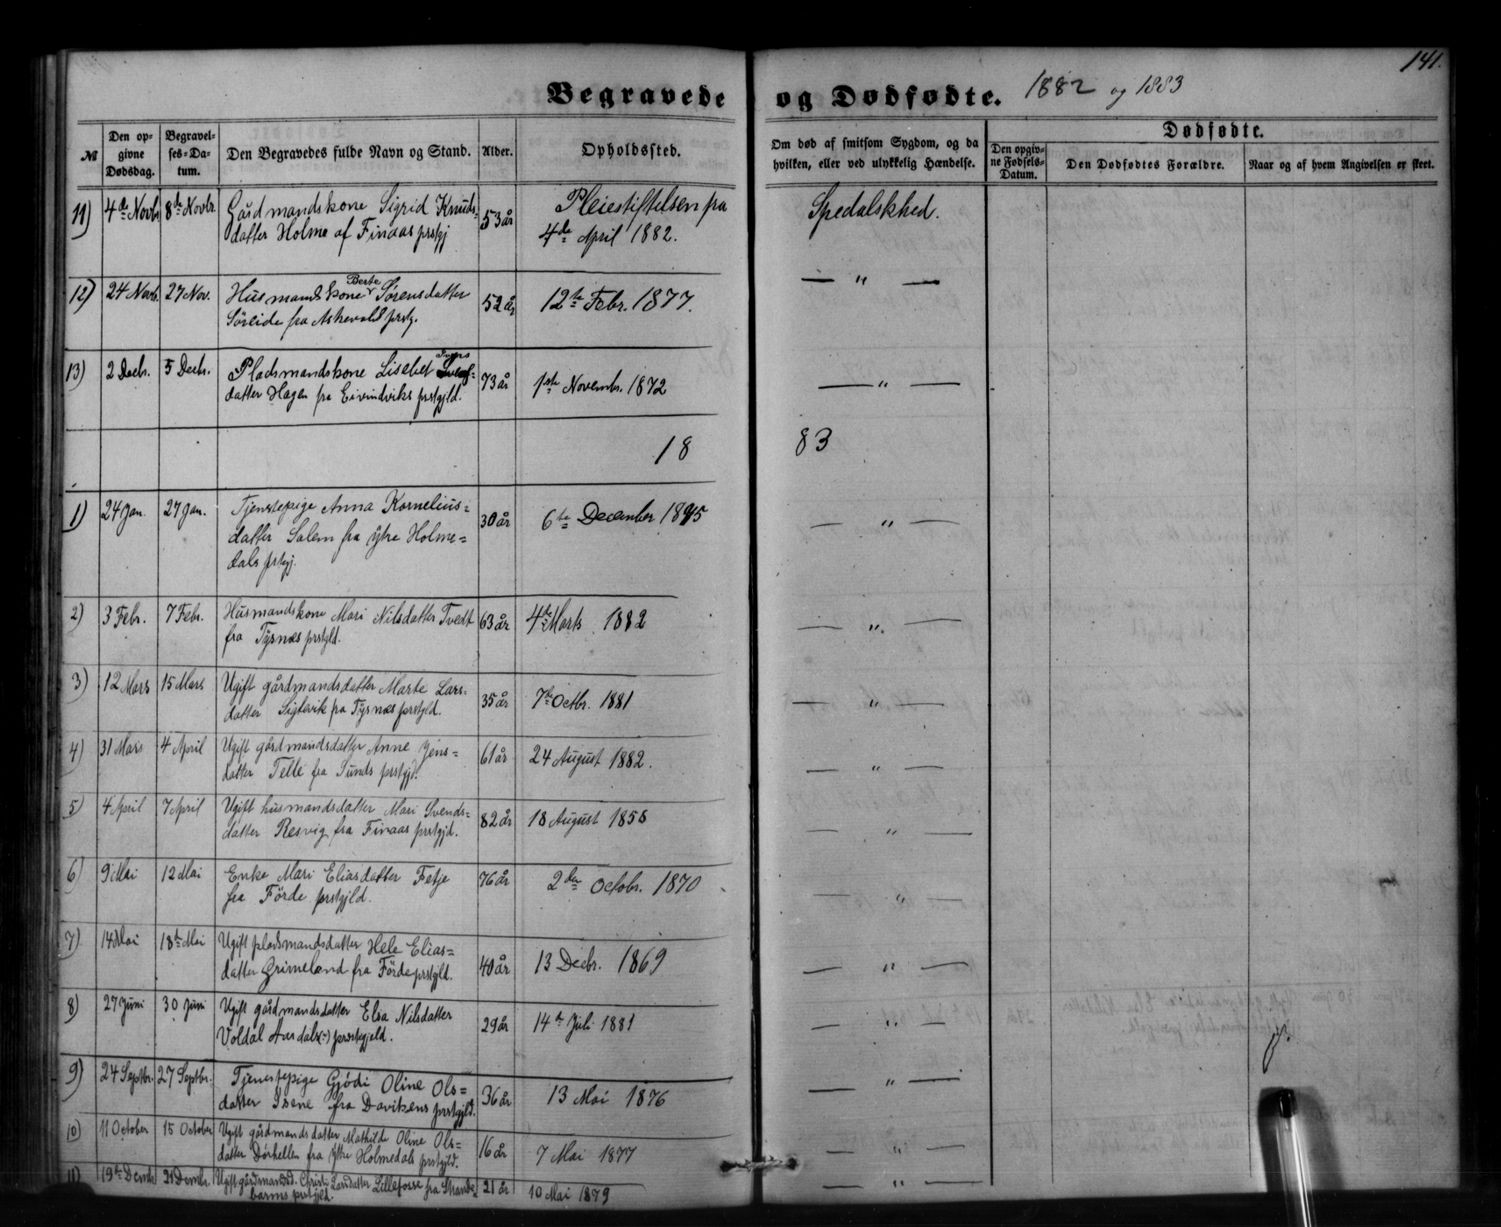 141.
Begravede og Dødfødte. 1882 og 1883
№
Den opgivne Dødsdag.
Begravelses-Datum.
Den Begravedes fulde Navn og Stand.
Alder.
Opholdssted.
Om død af smitsom Sygdom, og da hvilken, eller ved ulykkelig Hændelse.
Dødfødte.
Den opgivne Fødsels-Datum.
Den Dødfødtes Forældre.
Naar og af hvem Angivelsen er skeet.
11) 4de Novb 8de Novbr Gårdmandskone Sigrid Knuds- 53 år Pleiestiftelsen fra Spedalskhed.
datter Holme af Finaas prstgj 4de April 1882.
12) 24 Novb. 27 Nov. Husmandskone Berte Sørensdatter 52 år 12te Febr. 1877. — " —
Søreide fra Askevold prstg.
13) 2 Decbr. 5 Decbr. Pladsmandskone Lisebet 73 år 1ste Novembr. 1872 — " —
datter Hagen fra Eivindviks prstgjld.
18 83
1) 24 Jan. 27 Jan. Tjenestepige Anna Kornelius= 30 år 6te December — " —
datter Salem fra ytre Holme=
dals prstgj.
2) 3 Febr. 7 Febr. Husmandskone Mari Nilsdatter Tvedt 63 år 4de Marts 1882 — " —
fra Tysnæs prstgld.
3) 12 Mars 15 Mars Ugift gårdmandsdatter Marte Lars- 35 år 7de Octbr. 1881 — " —
datter Sigtevik fra Tysnæs prstgjld.
4) 31 Mars 4 April Ugift gårdmandsdatter Anne Jens= 61 år 24 August 1882. — " —
datter Telle fra Sunds prstgjd.
5) 4 April 7 April Ugift husmandsdatter Mari Svends= 82 år 18 August 1858 — " —
datter Resvig fra Finaas prstgjd.
6) 9 Mai 12 Mai Enke Mari Eliasdatter Fetje 76 år 2den Octobr. 1870 — " —
fra Förde prstgjld.
7) 14 Mai 18de Mai Ugift pladsmandsdatter Hele Elias= 40 år 13 Decbr. 1869 — " —
datter Grimeland fra Förde prstgjld.
8) 27 Juni 30 Juni Ugift gårdmandsdatter Elsa Nilsdatter 29 år 14de Juli 1881 — " —
Voldal Aasdals(-) præstegjeld.
9) 24 Septbr. 27 Septbr. Tjenestepige Gjödi Oline Ols= 36 år 13 Mai 1876 — " —
datter Isene fra Davikens prstgjld.
10) 11 October 15 October Ugift gårdmandsdatter Mathilde Oline Ols= 16 år 7 Mai 1877 — " —
datter Dørhellen fra Ytre Holmedals prstgjld.
11) 19de Decmb 21 Decmbr. Ugift gårdmandsd. Christi Larsdatter Lillefosse fra Strande= 21 år 10 Mai 1879 — " —
barms prstgjld.